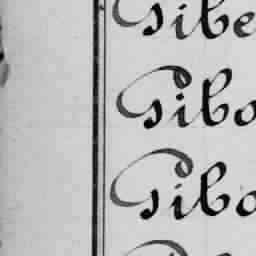 Gibe
Gibo
Gibo